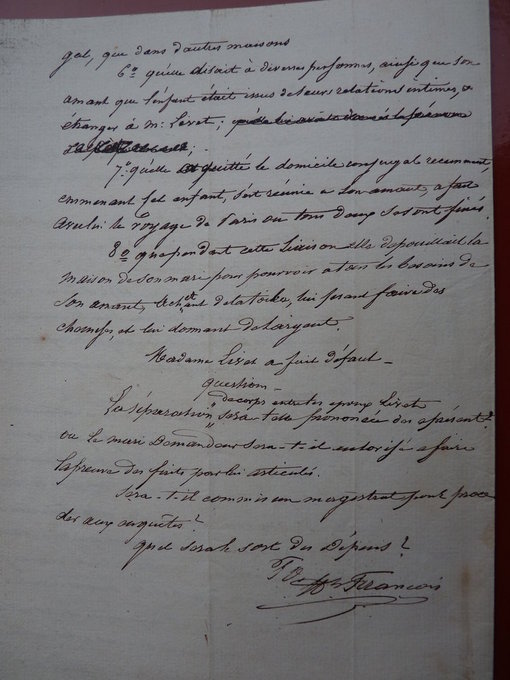 gal, que dans d'autres maisons
6º qu'elle disait à diverses personnes, ainsi que son
amant que l'enfant était issus de leurs relations intimes, &
étranger à Mr Livet;
7º qu'elle a quitté le domicile conjugal recemment,
emmenant cet enfant, s'est réunie a son amant, a fait
avec lui le voyage de Paris ou tous deux se sont fixés.
8º que pendant cette liaison elle depouillait la
maison de son mari pour pourvoir a tous les besoins de
son amant, achetant de la toile, lui fesant faire des
chemises, et lui donnant de l'argent.
Madame Livet a fait défaut
question
de corps entre les epoux Livet
La séparation sera-t-elle prononcée des aprésent?
ou le mari Demandeur sera-t-il autorisé a faire
la preuve des faits par lui articulés.
Sera-t-il commis un magistrat pour proce
der aux enquêtes?
quel sera le sort des Dépens?
François